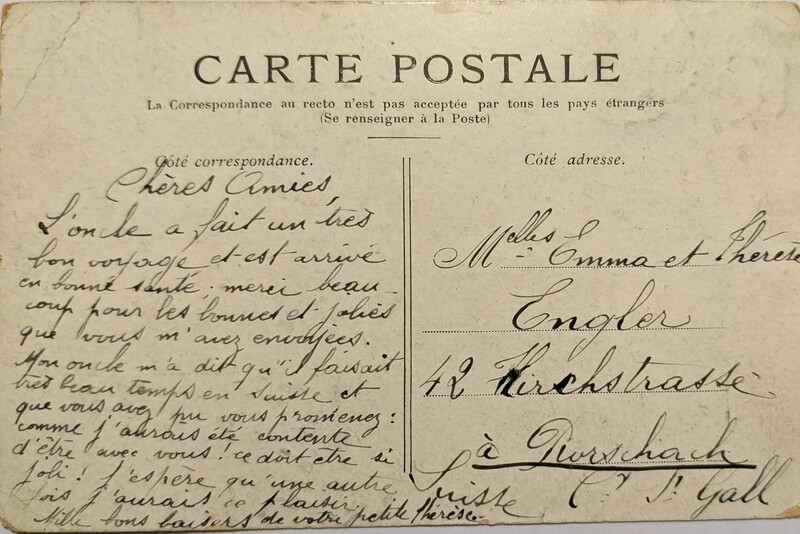 CARTE POSTALE
La Correspondance au recto n'est pas acceptée par tous les pays étrangers
(Se renseigner à la Poste)
Côté correspondance.
Chères Amies,
L'oncle a fait un très
bon voyage et est arrivé
en bonne santé, merci beau-
coup pour les bonnes et jolies
que vous m'avez envoyées.
Mon oncle m'a dit qu'il faisait
très beau temps en Suisse et
que vous avez pu vous promenez:
comme j'aurais été contente
d'être avec vous! ce doit être si
joli! J'espère qu'une autre
fois j'aurais ce plaisir.
Mille bons baisers de votre petite Thérèse.
Côté adresse.
Melles Emma et Thérèse
Engler
42 Kirchstrasse
à Rorschach
Suisse Ct St Gall